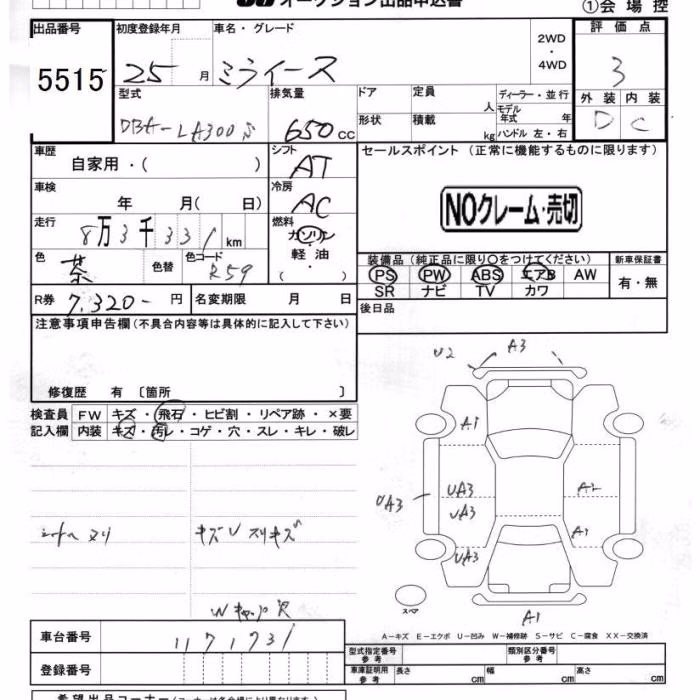 オークション出品申込書
①会場控
出品番号 初度登録年月 車名・グレード 2WD・4WD 評価点
5515 25 月 ミライース 3
型式 排気量 ドア 定員 人 ディーラー・並行 外装 内装
DBA-LA300S 650 cc 形状 積載 kg モデル年式 年 ハンドル 左・右 D C
車歴 自家用・( ) シフト AT セールスポイント (正常に機能するものに限ります)
車検 年 月( 日) 冷房 AC NOクレーム・売切
走行 8万3千331km 燃料 ガソリン・軽油・( )
色 茶 色替 色コード R59
装備品(純正品に限り○をつけてください) 新車保証書
PS PW ABS エアB AW 有・無
SR ナビ TV カワ
R券 7,320- 円 名変期限 月 日 後日品
注意事項申告欄(不具合内容等は具体的に記入して下さい)
修復歴 有 〔箇所 〕
検査員 FW キズ・飛石・ヒビ割・リペア跡・×要
記入欄 内装 キズ・汚レ・コゲ・穴・スレ・キレ・破レ
U2 A3
A1
UA3 UA3 A2
UA3
A1
UA3
スペア
A1
キズU スリキズ
A-キズ E-エクボ U-凹み W-補修跡 S-サビ C-腐食 XX-交換済
車台番号 1171731
型式指定番号 参考 類別区分番号 参考
登録番号 車庫証明用 参考 長さ cm 幅 cm 高さ cm
希望出品コーナー